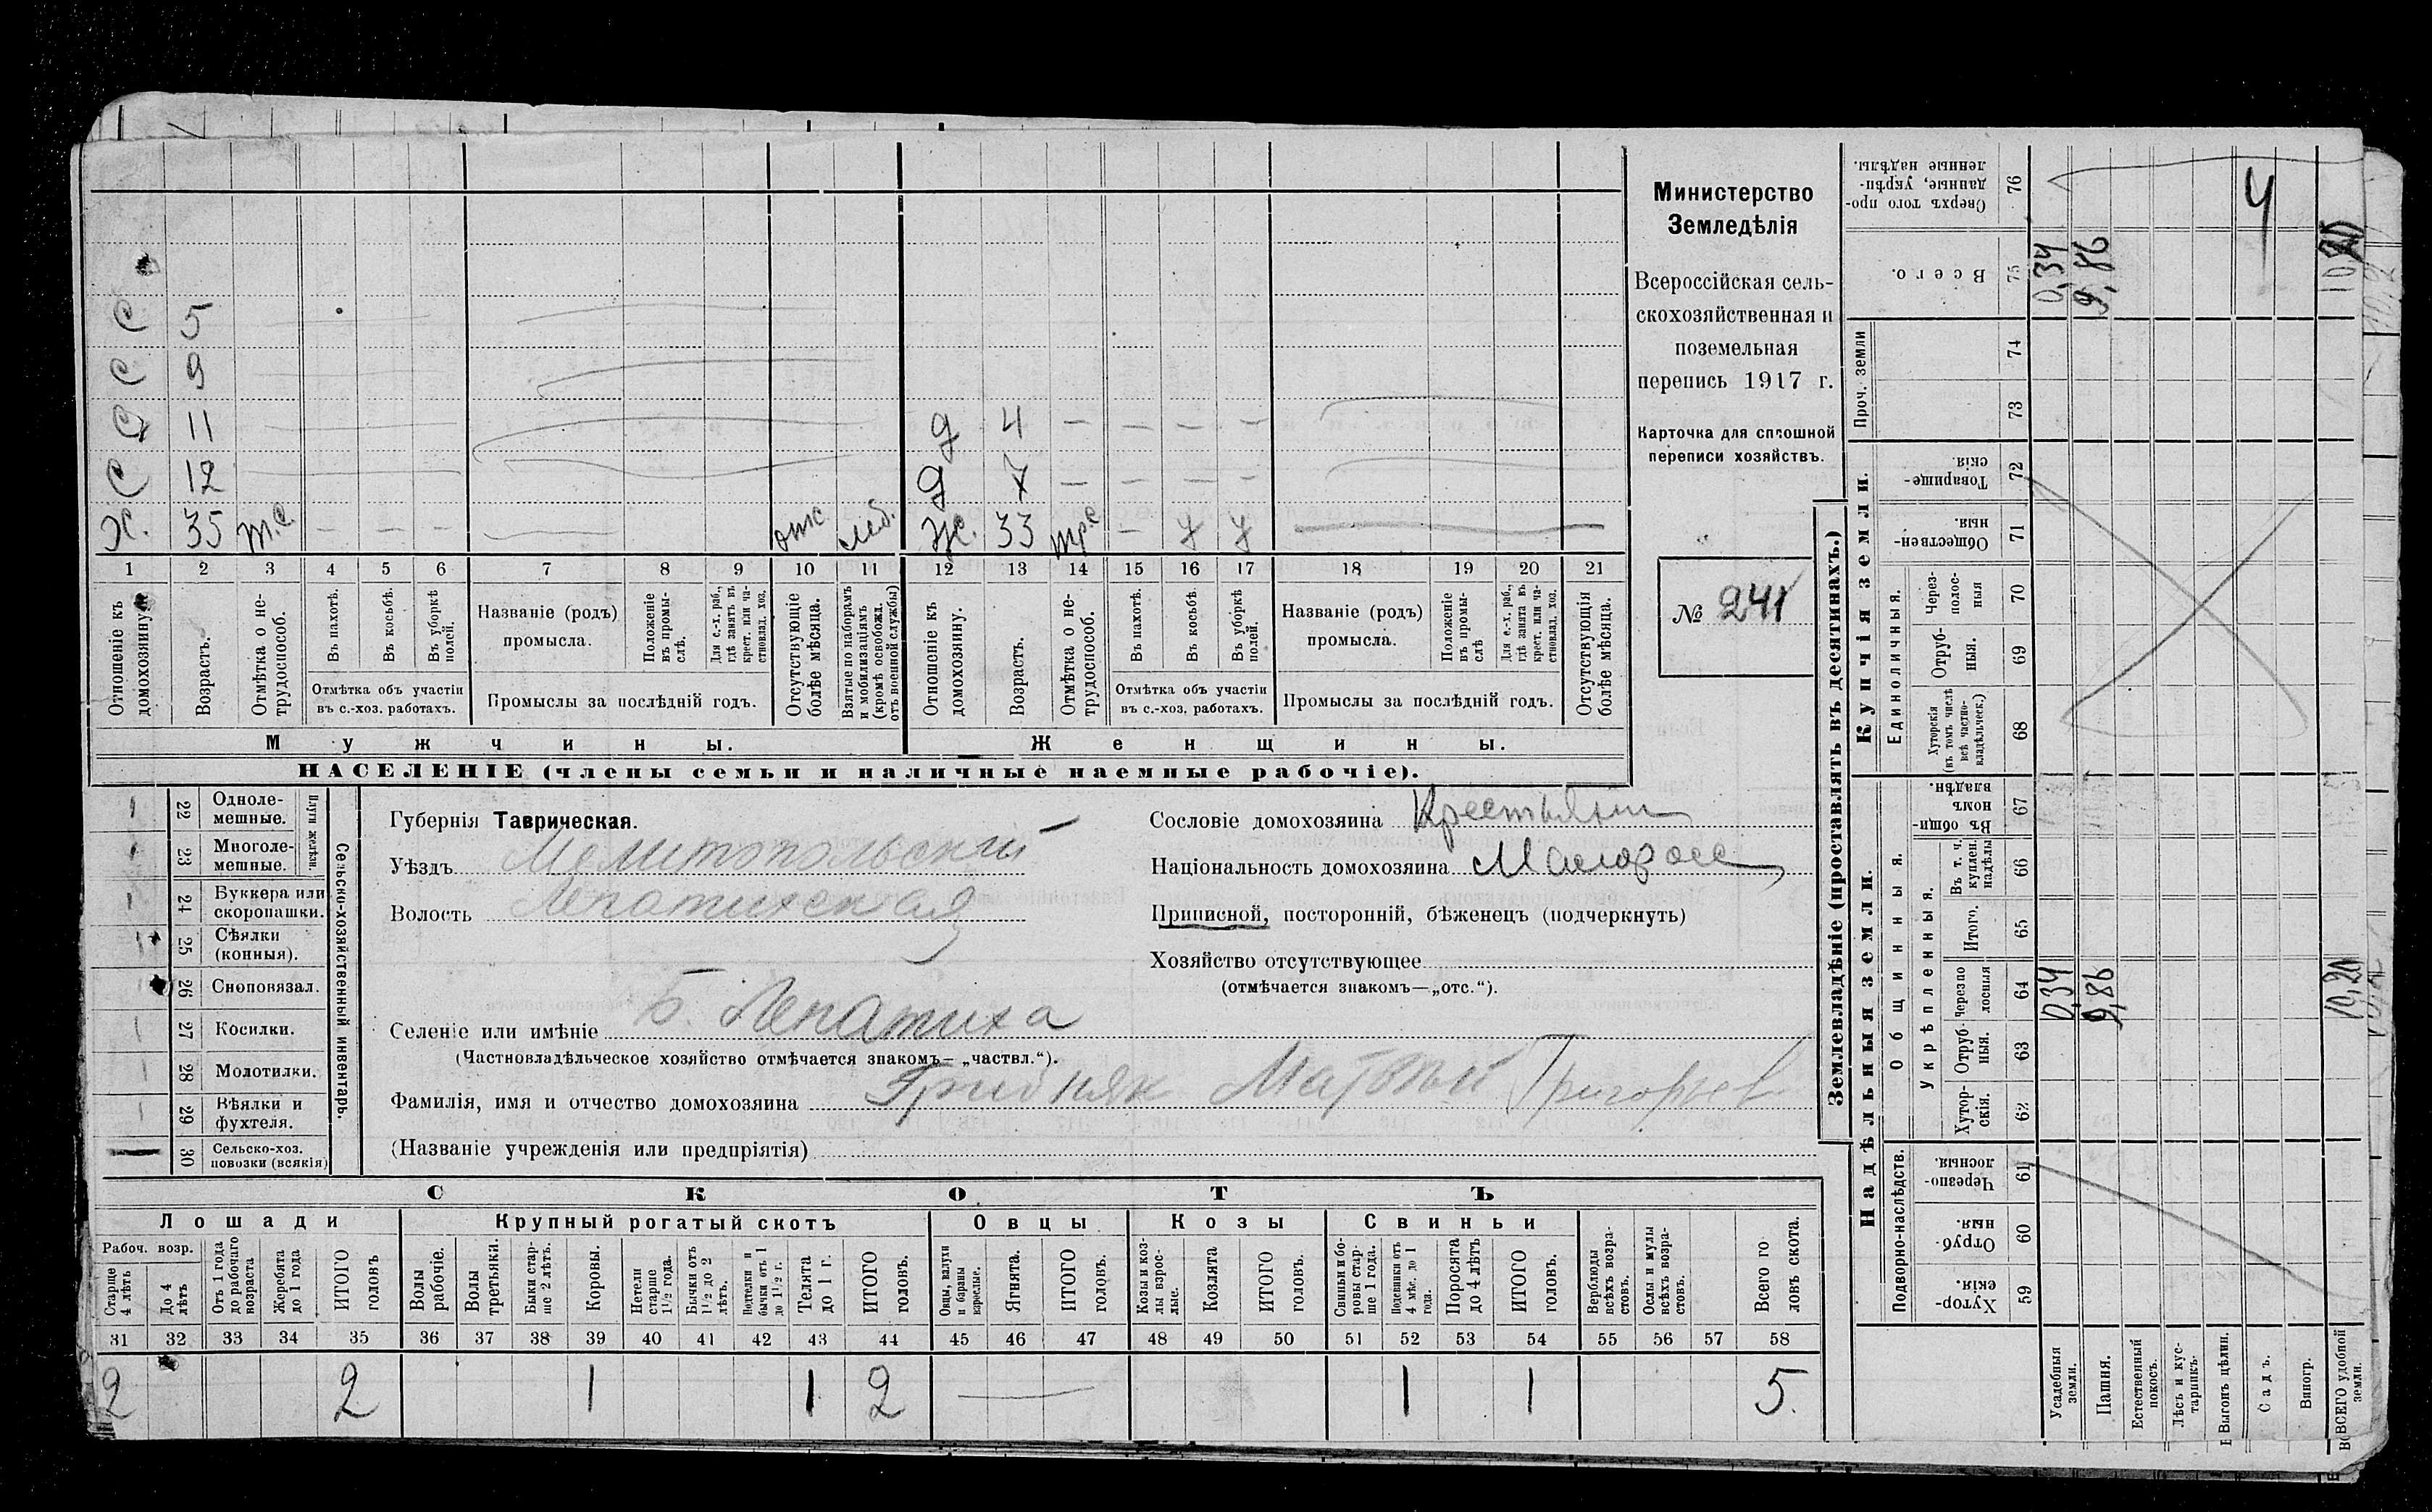 С 5
С 9
С 11
д 4 — — — —
С 12
д 7 — — — —
Х. 35 т.с. — — — — отс моб.
Ж. 33 тр.с — 7 7 —
1 2 3 4 5 6 7 8 9 10 11 12 13 14 15 16 17 18 19 20 21
Отношеніе къ домохозяину.
Возрастъ.
Отмѣтка о нетрудоспособ.
Въ пахотѣ.
Въ косьбѣ.
Въ уборкѣ полей.
Отмѣтка объ участіи
въ с.-хоз. работахъ.
Названіе (родъ)
промысла.
Положеніе въ промыслѣ.
Для с.-х. раб., гдѣ занятъ въ крест. или частновлад. хоз.
Промыслы за послѣдній годъ.
Отсутствующіе болѣе мѣсяца.
Взятые по наборамъ и мобилизаціямъ (кромѣ освобожд. отъ военной службы)
Отношеніе къ домохозяину.
Возрастъ.
Отмѣтка о нетрудоспособ.
Въ пахотѣ.
Въ косьбѣ.
Въ уборкѣ полей.
Отмѣтка объ участіи
въ с.-хоз. работахъ.
Названіе (родъ)
промысла.
Положеніе въ промыслѣ
Для с.-х. раб., гдѣ занятъ въ крест. или частновлад. хоз.
Промыслы за послѣдній годъ.
Отсутствующія болѣе мѣсяца.
Мужчины.
Женщины.
НАСЕЛЕНІЕ (члены семьи и наличные наемные рабочіе).
Министерство
Земледѣлія
Всероссійская сель-
скохозяйственная и
поземельная
перепись 1917 г.
Карточка для сплошной
переписи хозяйствъ.
№ 241
Сельско-хозяйственный инвентарь.
Плуги желѣзн.
1 22 Одноле-
мешные.
1 23 Многоле-
мешные.
1 24 Буккера или
скоропашки.
1 25 Сѣялки
(конныя).
26 Сноповязал.
1 27 Косилки.
1 28 Молотилки.
1 29 Вѣялки и
фухтеля.
30 Сельско-хоз.
повозки (всякія)
Губернія Таврическая.
Уѣздъ Мелитопольскій
Волость Лепатихская
Селеніе или имѣніе Б. Лепатиха
(Частновладѣльческое хозяйство отмѣчается знакомъ— „частвл.“).
Фамилія, имя и отчество домохозяина Грибняк Матвѣй Григорьев
(Названіе учрежденія или предпріятія)
Сословіе домохозяина Крестьянин
Національность домохозяина Малоросс
Приписной, посторонній, бѣженецъ (подчеркнуть)
Хозяйство отсутствующее
(отмѣчается знакомъ—„отс.“).
СКОТЪ
Лошади
Крупный рогатый скотъ
Овцы
Козы
Свиньи
Рабоч. возр.
Старше 4 лѣтъ
До 4 лѣтъ
Отъ 1 года до рабочаго возраста
Жеребята до 1 года
ИТОГО головъ
Волы рабочіе.
Волы третьяки.
Быки старше 2 лѣтъ.
Коровы.
Нетели старше 1½ года.
Бычки отъ 1½ до 2 лѣтъ.
Подтелки и бычки отъ 1 до 1½ г.
Телята до 1 г.
ИТОГО головъ.
Овцы, валухи и бараны взрослые.
Ягнята.
ИТОГО головъ.
Козы и козлы взрослые.
Козлята
ИТОГО головъ.
Свиньи и боровы старше 1 года.
Подсвинки отъ 4 мѣс. до 1 года.
Поросята до 4 лѣтъ
ИТОГО головъ.
Верблюды всѣхъ возрастовъ.
Ослы и мулы всѣхъ возрастовъ.
Всего головъ скота.
31 32 33 34 35 36 37 38 39 40 41 42 43 44 45 46 47 48 49 50 51 52 53 54 55 56 57 58
2 2 1 1 2 — 1 1 5.
Землевладѣніе (проставлять въ десятинахъ.)
Надѣльныя земли.
Купчія земли.
Проч. земли
Подворно-наслѣдств.
Общинныя.
Укрѣпленныя.
Единоличныя.
Сверхъ того проданные, укрѣпленные надѣлы. 76
Всего. 75 0,34 9,86
74
73
Товарищескія. 72
Общественныя. 71
Черезполосныя 70
Отрубныя. 69
Хуторскія (въ томъ числѣ всѣ частновладѣльческ.) 68
Въ общинномъ владѣн. 67
Въ т. ч. куплен. надѣлы 66
Итого. 65
Черезполосныя 64 0,34 9,86 10,20
Отрубныя. 63
Хуторскія. 62
Черезполосныя. 61
Отрубныя. 60
Хуторскія. 59
Усадебныя земли.
Пашня.
Естественный покосъ.
Лѣсъ и кустарникъ.
Выгонъ цѣлин.
Садъ.
Виногр.
ВСЕГО удобной земли.
4